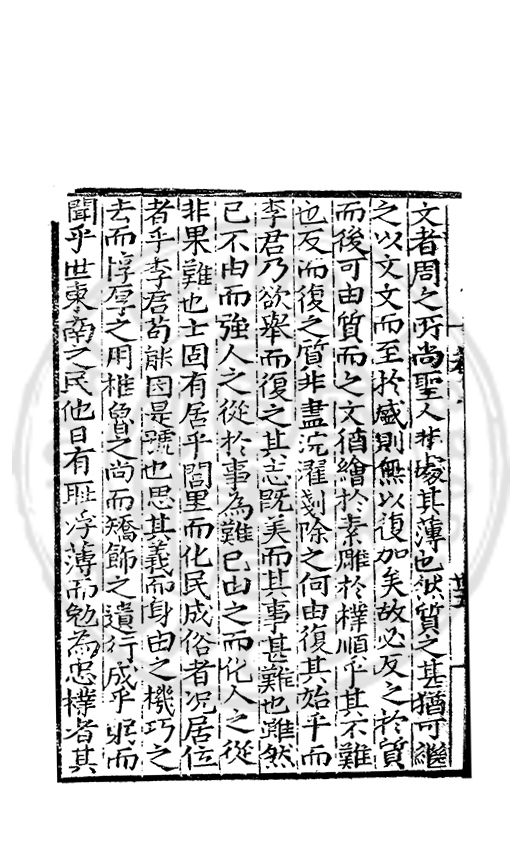 文者周之所尚聖人非處其薄也然質之甚猶可繼
之以文文而至於盛則無以復加矣故必反之於質
而後可由質而之文猶繪於素雕於樸順乎其不難
也反而復之質非盡浣濯剗除之何由復其始乎而
李君乃欲舉而復之其志既美而其事甚難也雖然
已不由而強人之從於事為難已由之而化人之從
非果難也士固有居乎閭里而化民成俗者况居位
者乎李君苟能因是號也思其義而身由之機巧之
去而惇厚之用椎魯之尚而矯飾之遺行成乎躬而
聞乎世東南之民他日有耻浮薄而勉為忠樸者其